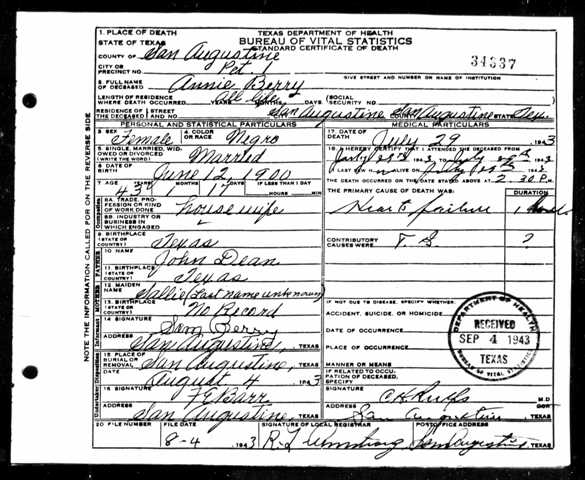 NOTE THE INFORMATION CALLED FOR ON THE REVERSE SIDE
TEXAS DEPARTMENT OF HEALTH
BUREAU OF VITAL STATISTICS
STANDARD CERTIFICATE OF DEATH
34337
1. PLACE OF DEATH
STATE OF TEXAS
COUNTY OF San Augustine
CITY OR PRECINCT NO. Pct 1
GIVE STREET AND NUMBER OR NAME OF INSTITUTION
2. FULL NAME OF DECEASED Annie Berry
LENGTH OF RESIDENCE WHERE DEATH OCCURRED YEARS MONTHS DAYS (SOCIAL SECURITY NO.
RESIDENCE OF THE DECEASED STREET AND NO. San Augustine COUNTY San Augustine STATE Tex.
PERSONAL AND STATISTICAL PARTICULARS
3. SEX Female 4. COLOR OR RACE Negro
5. SINGLE, MARRIED, WIDOWED OR DIVORCED (WRITE THE WORD) Married
6. DATE OF BIRTH June 12, 1900
7. AGE 43 YEARS 1 MONTHS 17 DAYS IF LESS THAN 1 DAY HOURS MIN
8A. TRADE, PROFESSION OR KIND OF WORK DONE housewife
8B. INDUSTRY OR BUSINESS IN WHICH ENGAGED
9. BIRTHPLACE (STATE OR COUNTRY) Texas
10. NAME John Dean
11. BIRTHPLACE (STATE OR COUNTRY) Texas
12. MAIDEN NAME Sallie (Last name unknown)
13. BIRTHPLACE (STATE OR COUNTRY) No Record
14. SIGNATURE Sam Berry
ADDRESS San Augustine, TEXAS
15. PLACE OF BURIAL OR REMOVAL San Augustine, TEXAS
August 4 1943
16. SIGNATURE
ADDRESS San Augustine, TEXAS
MEDICAL PARTICULARS
17. DATE OF DEATH July 29 1943
18. I HEREBY CERTIFY THAT I ATTENDED THE DECEASED FROM
ALIVE ON 1943
THE DEATH OCCURRED ON THE DATE STATED ABOVE AT 2:30 P.M.
THE PRIMARY CAUSE OF DEATH WAS: DURATION
Heart failure
CONTRIBUTORY CAUSES WERE
IF NOT DUE TO DISEASE, SPECIFY WHETHER:
ACCIDENT, SUICIDE, OR HOMICIDE
DATE OF OCCURRENCE
PLACE OF OCCURRENCE
MANNER OR MEANS
IF RELATED TO OCCUPATION OF DECEASED, SPECIFY
SIGNATURE M.D.
ADDRESS San Augustine TEXAS
DEPARTMENT OF HEALTH
RECEIVED
SEP 4 1943
TEXAS
BUREAU OF VITAL STATISTICS
20 FILE NUMBER FILE DATE SIGNATURE OF LOCAL REGISTRAR POSTOFFICE ADDRESS
8-4 1943 San Augustine, TEXAS